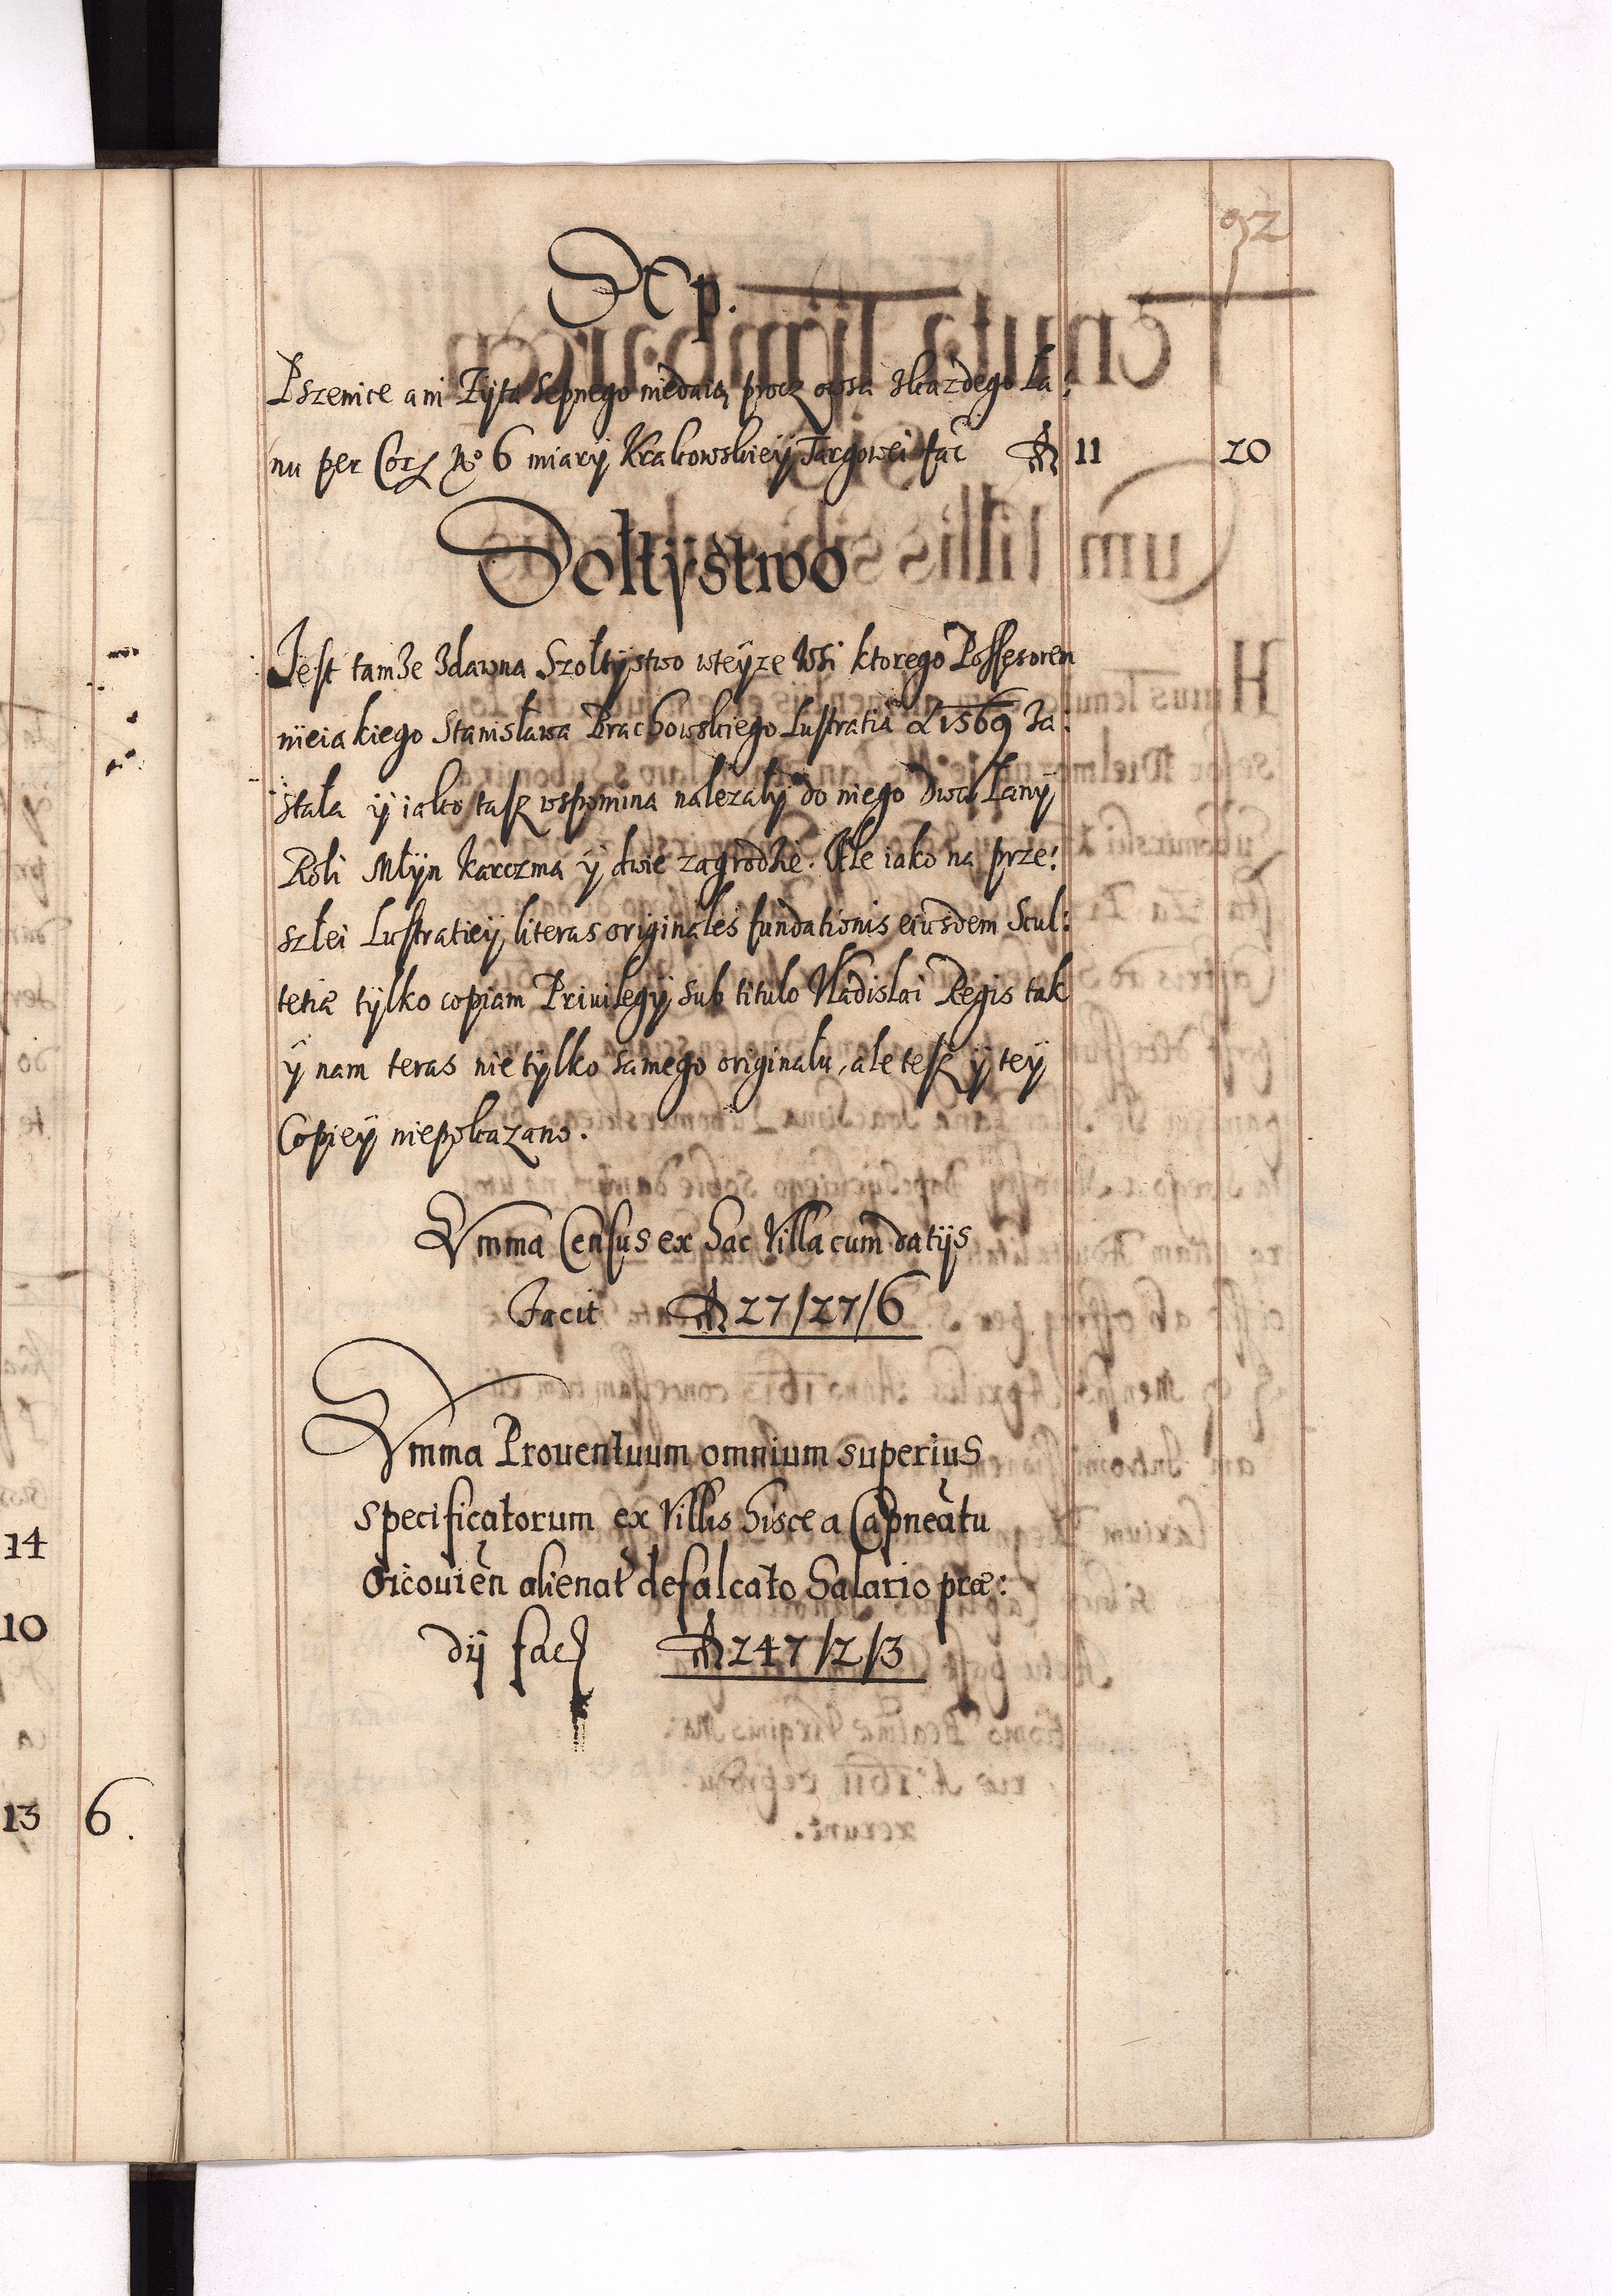 92
Sęp.
Pszenice ani Zÿta Sepnego niedaią procz owsa zkazdego Ła:
nu per Cor₃ No 6 miarÿ Krakowskieÿ Targowei fac̃ 11 20
Sołtÿstwo
Jest tamże zdawna Szołtÿstwo wteÿze Wsi ktorego Possesorem
nieiakiego Stanisława Brachowskiego Lustratia 1569 Za:
stała ÿ iako tasz wspomina nalezałÿ do niego dwa Łanÿ
Roli Młÿn Karczma ÿ dwie zagrodzie. Ale iako na prze:
szłei Lustratieÿ literas originales fundationis eiusdem Scul:
tetiæ tÿlko copiam Priuilegÿ sub titulo Vladislai Regis tak
ÿ nam teras nie tÿlko samego originału, ale tesz ÿ teÿ
Copieÿ niepokazano.
Summa Census ex hac Villa cum datijs
Facit 27/27/6
Summa Prouentuum omnium superius
specificatorum ex Villis hisce a Capneatu
Oicouien̄ alienat̃ defalcato Salario præ:
dÿ fac̃ 247/2/3
14
10
13 6.